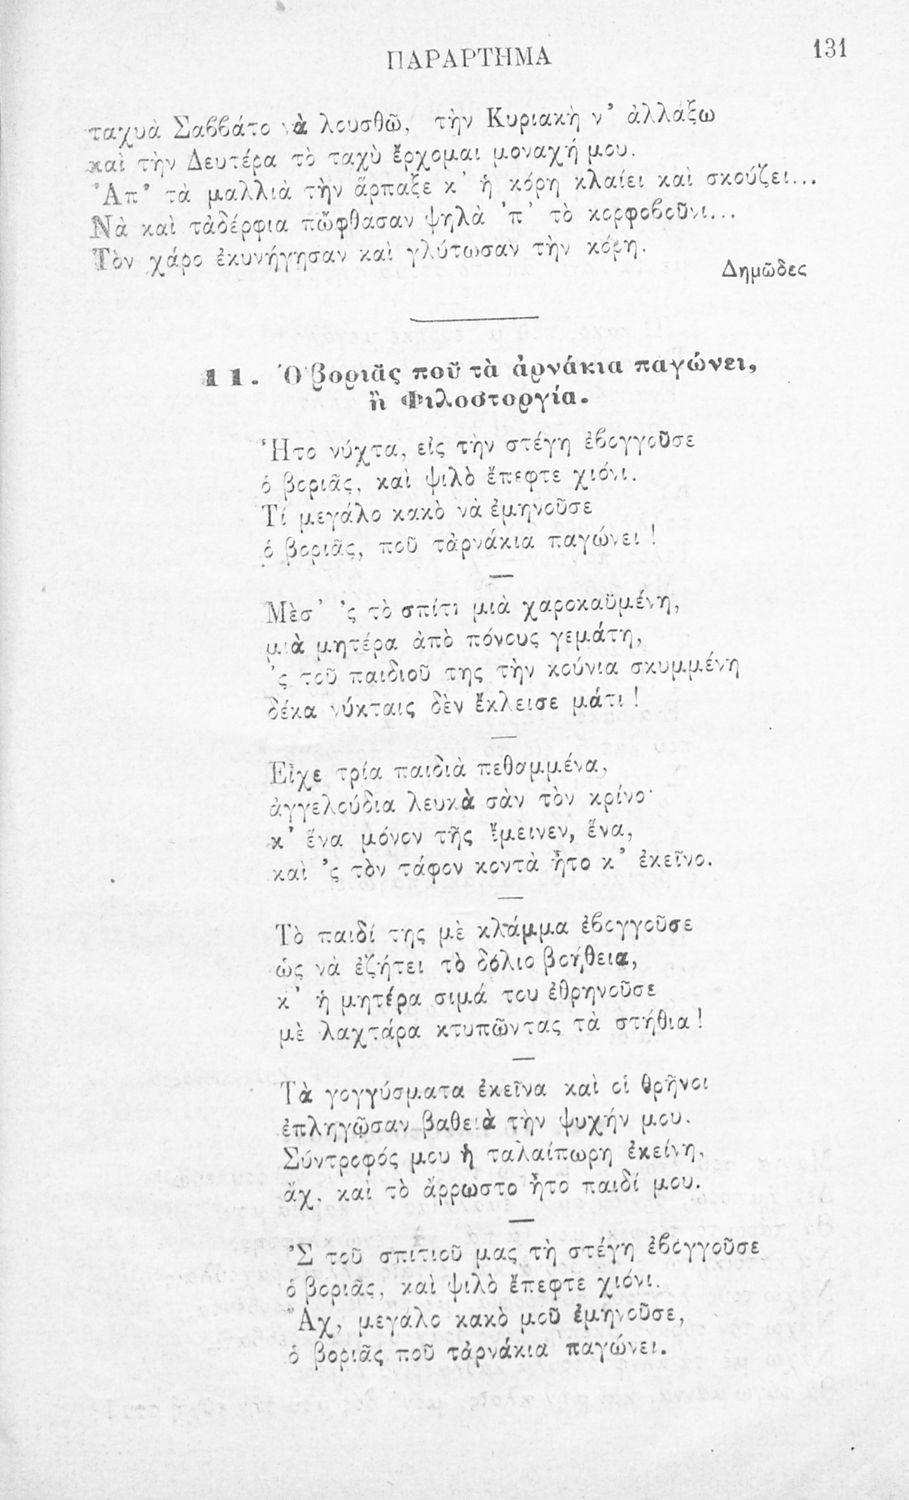 ΠΑΡΑΡΤΗΜΑ 131
ταχυὰ Σαββάτο νὰ λουσθῶ, τὴν Κυριακὴ ν' ἀλλάξω
καὶ τὴν Δευτέρα τὸ ταχὺ ἔρχομαι μοναχή μου.
Ἀπ' τὰ μαλλιὰ τὴν ἅρπαξε κ' ἡ κόρη κλαίει καὶ σκούζει...
Νὰ καὶ τἀδέρφια πὤφθασαν ψηλὰ 'π' τὸ κορφοβοῦνι...
Τὸν χάρο ἐκυνήγησαν καὶ γλύτωσαν τὴν κόρη.
Δημῶδες
11. Ὁ βοριᾶς ποῦ τὰ ἀρνάκια παγώνει,
ἢ Φιλοστοργία.
Ἦτο νύχτα, εἰς τὴν στέγη ἐβογγοῦσε
ὁ βοριᾶς, καὶ ψιλὸ ἔπεφτε χιόνι.
Τί μεγάλο κακὸ νὰ ἐμηνοῦσε
ὁ βοριᾶς, ποῦ τἀρνάκια παγώνει!
Μὲσ' 'ς τὸ σπίτι μιὰ χαροκαϋμένη,
μιὰ μητέρα ἀπὸ πόνους γεμάτη,
'ς τοῦ παιδιοῦ της τὴν κούνια σκυμμένη
δέκα νύκταις δὲν ἔκλεισε μάτι!
Εἶχε τρία παιδιὰ πεθαμμένα,
ἀγγελούδια λευκὰ σὰν τὸν κρίνο·
κ' ἕνα μόνον τῆς ἔμεινεν, ἕνα,
καὶ 'ς τὸν τάφον κοντὰ ἦτο κ' ἐκεῖνο.
Τὸ παιδί της μὲ κλάμμα ἐβογγοῦσε
ὡς νὰ ἐζήτει τὸ δόλιο βοήθεια,
κ' ἡ μητέρα σιμά του ἐθρηνοῦσε
μὲ λαχτάρα κτυπῶντας τὰ στήθια!
Τὰ γογγύσματα ἐκεῖνα καὶ οἱ θρῆνοι
ἐπληγῶσαν βαθειὰ τὴν ψυχήν μου.
Σύντροφός μου ἡ ταλαίπωρη ἐκείνη,
ἄχ, καὶ τὸ ἄρρωστο ἦτο παιδί μου.
'Σ τοῦ σπιτιοῦ μας τὴ στέγη ἐβογγοῦσε
ὁ βοριᾶς, καὶ ψιλὸ ἔπεφτε χιόνι.
Ἄχ, μεγάλο κακὸ μοῦ ἐμηνοῦσε,
ὁ βοριᾶς ποῦ τἀρνάκια παγώνει.